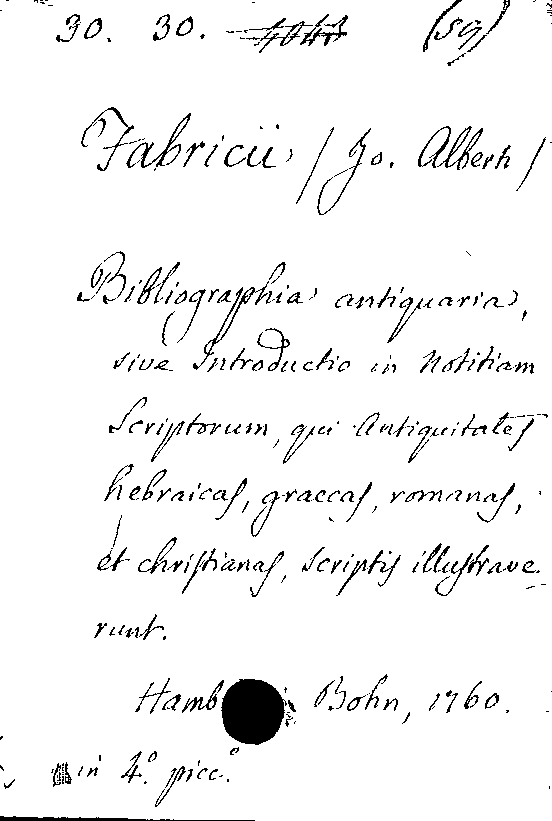 30. 30. (59)
Fabricii / Jo. Alberti /
Bibliographia antiquaria,
sive Introductio in Notitiam
Scriptorum, qui Antiquitates
hebraicas, graecas, romanas,
et christianas, scriptis illustrave-
runt.
Hamb Bohn, 1760.
in 4.° picc.°